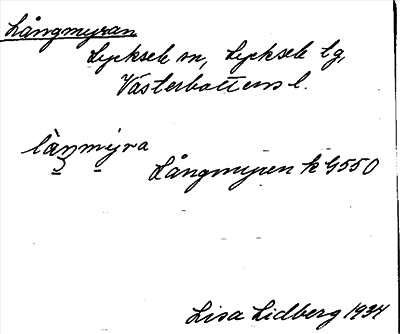 Långmyran
Lycksele sn, Lycksele lg,
Västerbottens l.
lånmýra
Långmyren k G550
Lisa Lidberg 1934